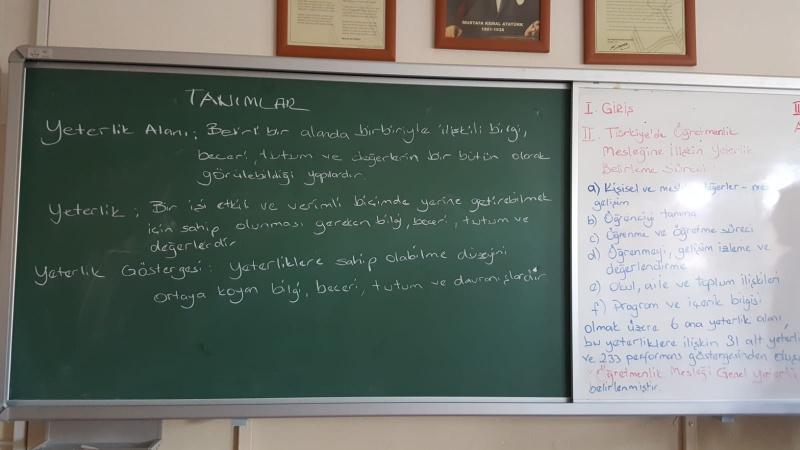 MUSTAFA KEMAL ATATÜRK
1881-1938
TANIMLAR
Yeterlik Alanı; Belirli bir alanda birbiriyle ilişkili bilgi,
beceri, tutum ve değerlerin bir bütün olarak
görülebildiği yapılardır.
Yeterlik; Bir işi etkili ve verimli biçimde yerine getirebilmek
için sahip olunması gereken bilgi, beceri, tutum ve
değerlerdir
Yeterlik Göstergesi: Yeterliklere sahip olabilme düzeyini
ortaya koyan bilgi, beceri, tutum ve davranışlardır.
I. GİRİŞ
II. Türkiye'de Öğretmenlik
Mesleğine İlişkin Yeterlik
Belirleme Süreci
a) Kişisel ve mesleki değerler - mes
gelişim
b) Öğrenciyi tanıma
c) Öğrenme ve öğretme süreci
d) Öğrenmeyi, gelişim izleme ve
değerlendirme
e) Okul, aile ve toplum ilişkileri
f) Program ve içerik bilgisi
olmak üzere 6 ana yeterlik alanı,
bu yeterliklere ilişkin 31 alt yeterli
ve 233 performans göstergesinden oluşa
Öğretmenlik Mesleği Genel Yeterli
belirlenmiştir.